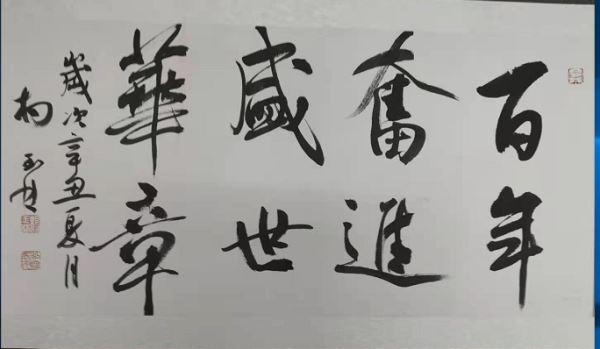 百年
奮進
盛世
華章
歲次辛丑夏月